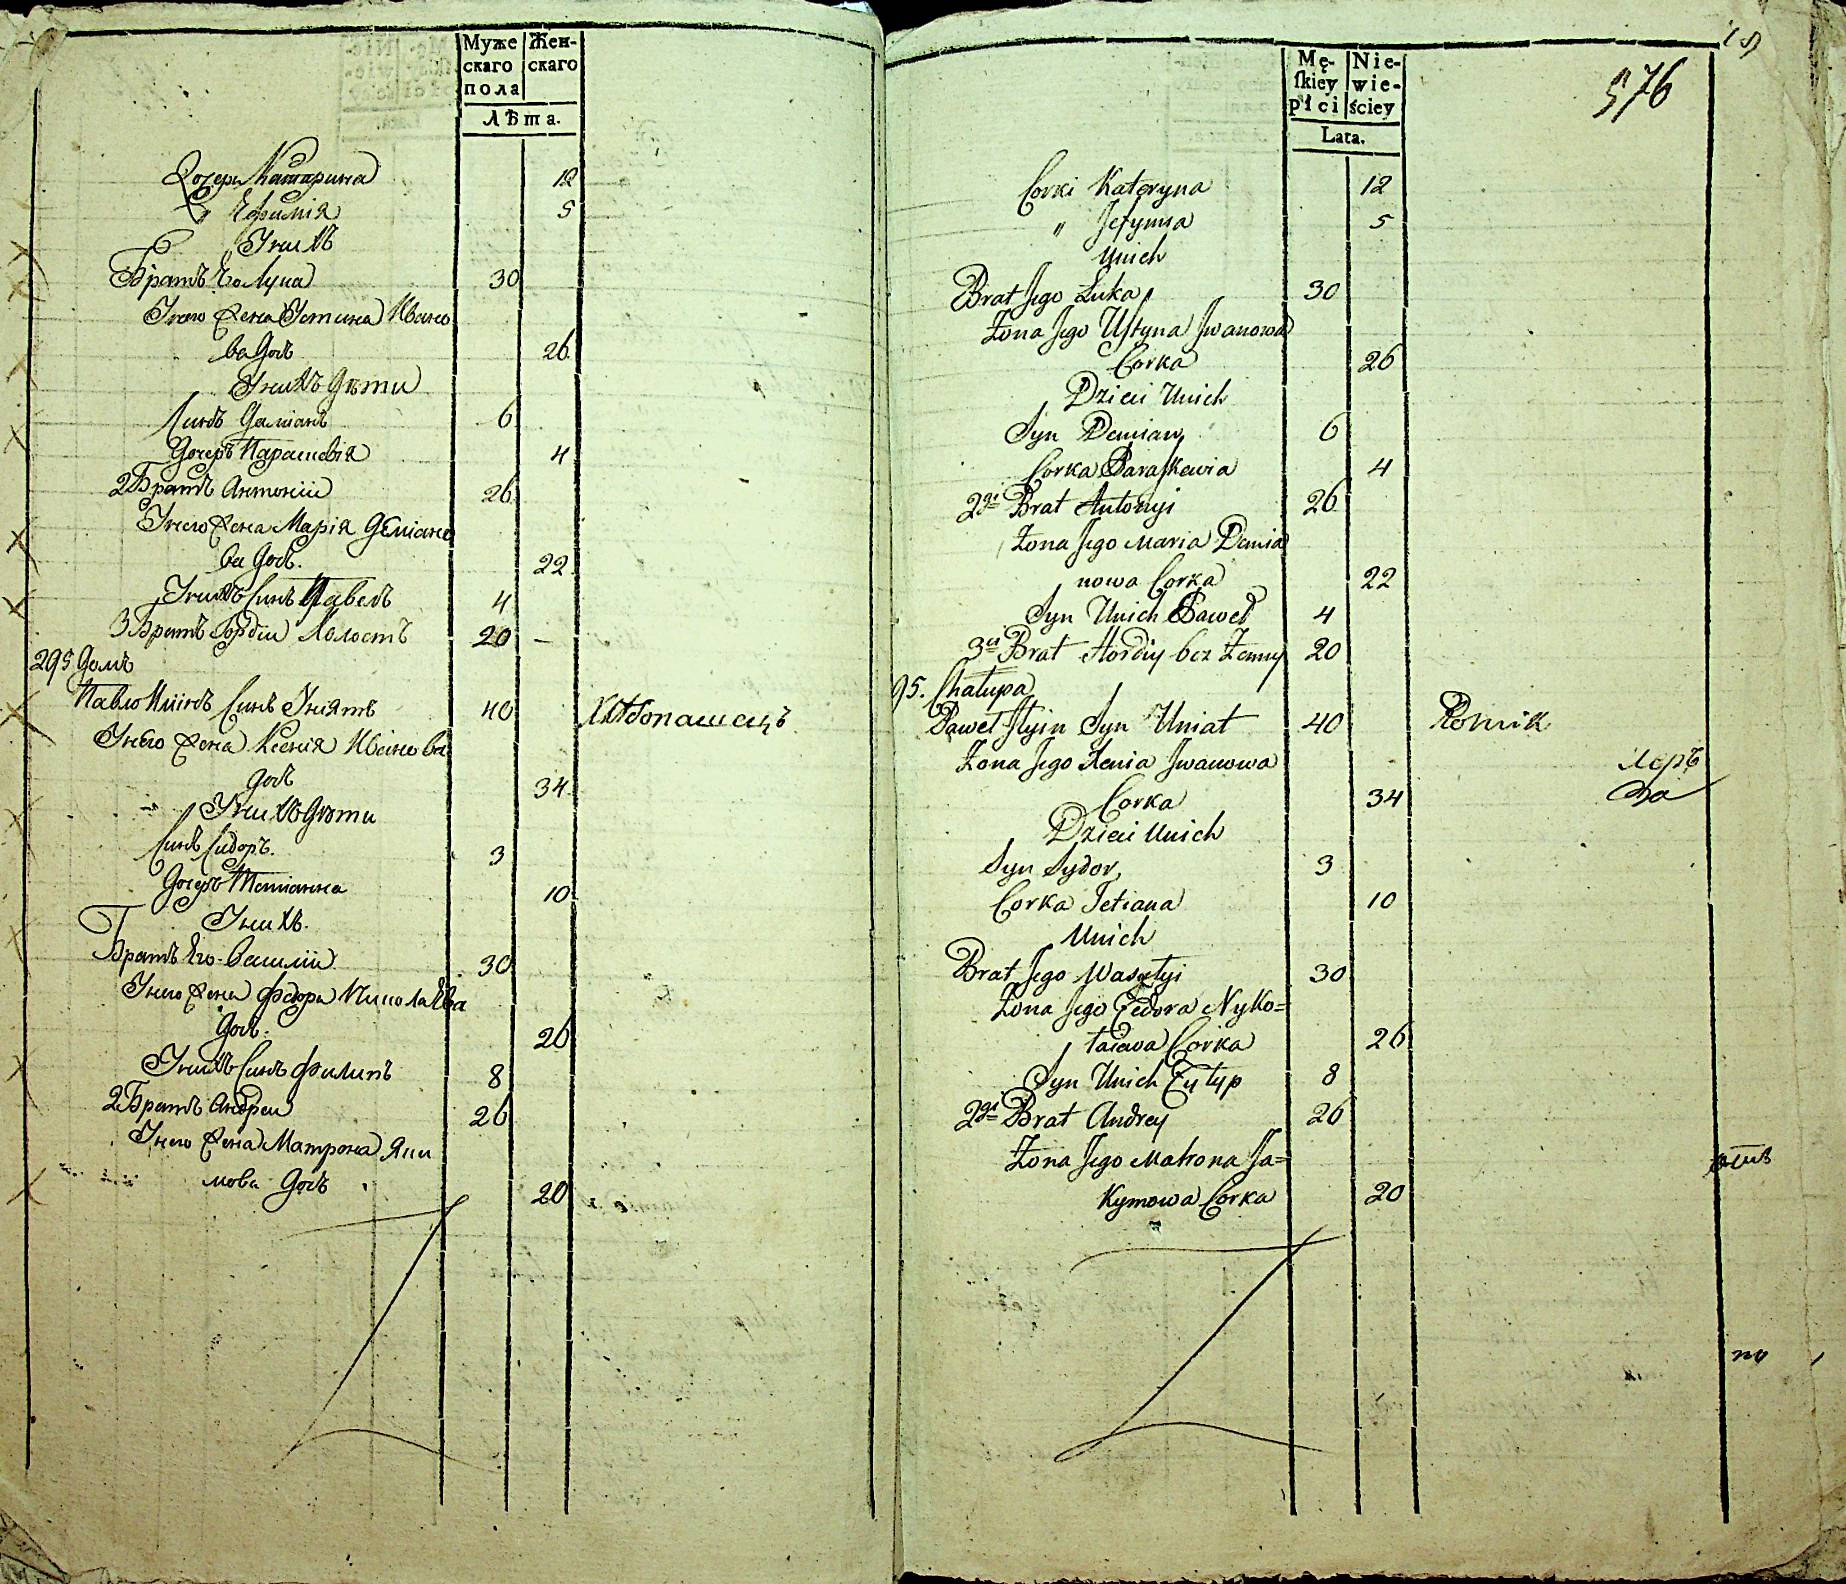 Муже Жен-
скаго скаго
пола
Лѣта.
Дочери Катарина 12
" Ефимія 5
У них
Братъ Его Лука 30
У него жена Устина Ивано
ва Доч 26
У нихъ Дѣти
Синъ Даміанъ 6
Дочеръ Параскевія 4
2 Братъ Антоніи 26
У него жена Марія Деміано
ва Доч. 22
У нихъ Синъ Павелъ 4
3 Братъ Гордіи Холостъ 20 —
295 Домъ
Павло Иліинъ Синъ Уніятъ 40 Хлѣбопашецъ
У него жена Ксенія Иванова
Доч 34
У нихъ Дѣти
Синъ Сидоръ. 3
Дочеръ Тетіанна 10
У нихъ.
Братъ Его Василіи 30
У него жена Федора Николаева
Доч. 26
У нихъ Синъ Филипъ 8
2 Братъ Андреи 26
У него жена Матрона Яки
мова Доч 20
576
Mę- Nie-
ſkiey wie-
płci ściey
Lata.
Corki Kateryna 12
" Jefymia 5
Unich
Brat Jego Łuka 30
Żona Jego Uſtyna Jwanowa
Corka 26
Dzieci Unich
Syn Demian 6
Corka Paraſkewia 4
2gi Brat Antonyi 26
Żona Jego Maria Demia
nowa Corka 22
Syn Unich Paweł 4
3ci Brat Hordiy bez Żenny 20
95. Chałupa
Paweł Jlyin Syn Uniat 40 Rolnik
Żona Jego Xenia Jwanowa
Corka 34
Dzieci Unich
Syn Sydor 3
Corka Tetiana 10
Unich
Brat Jego Wasylyi 30
Żona Jego Fedora Nyko=
łaiewa Corka 26
Syn Unich Fyłyp 8
2gi Brat Andrey 26
Żona Jego Matrona Ja=
kymowa Corka 20